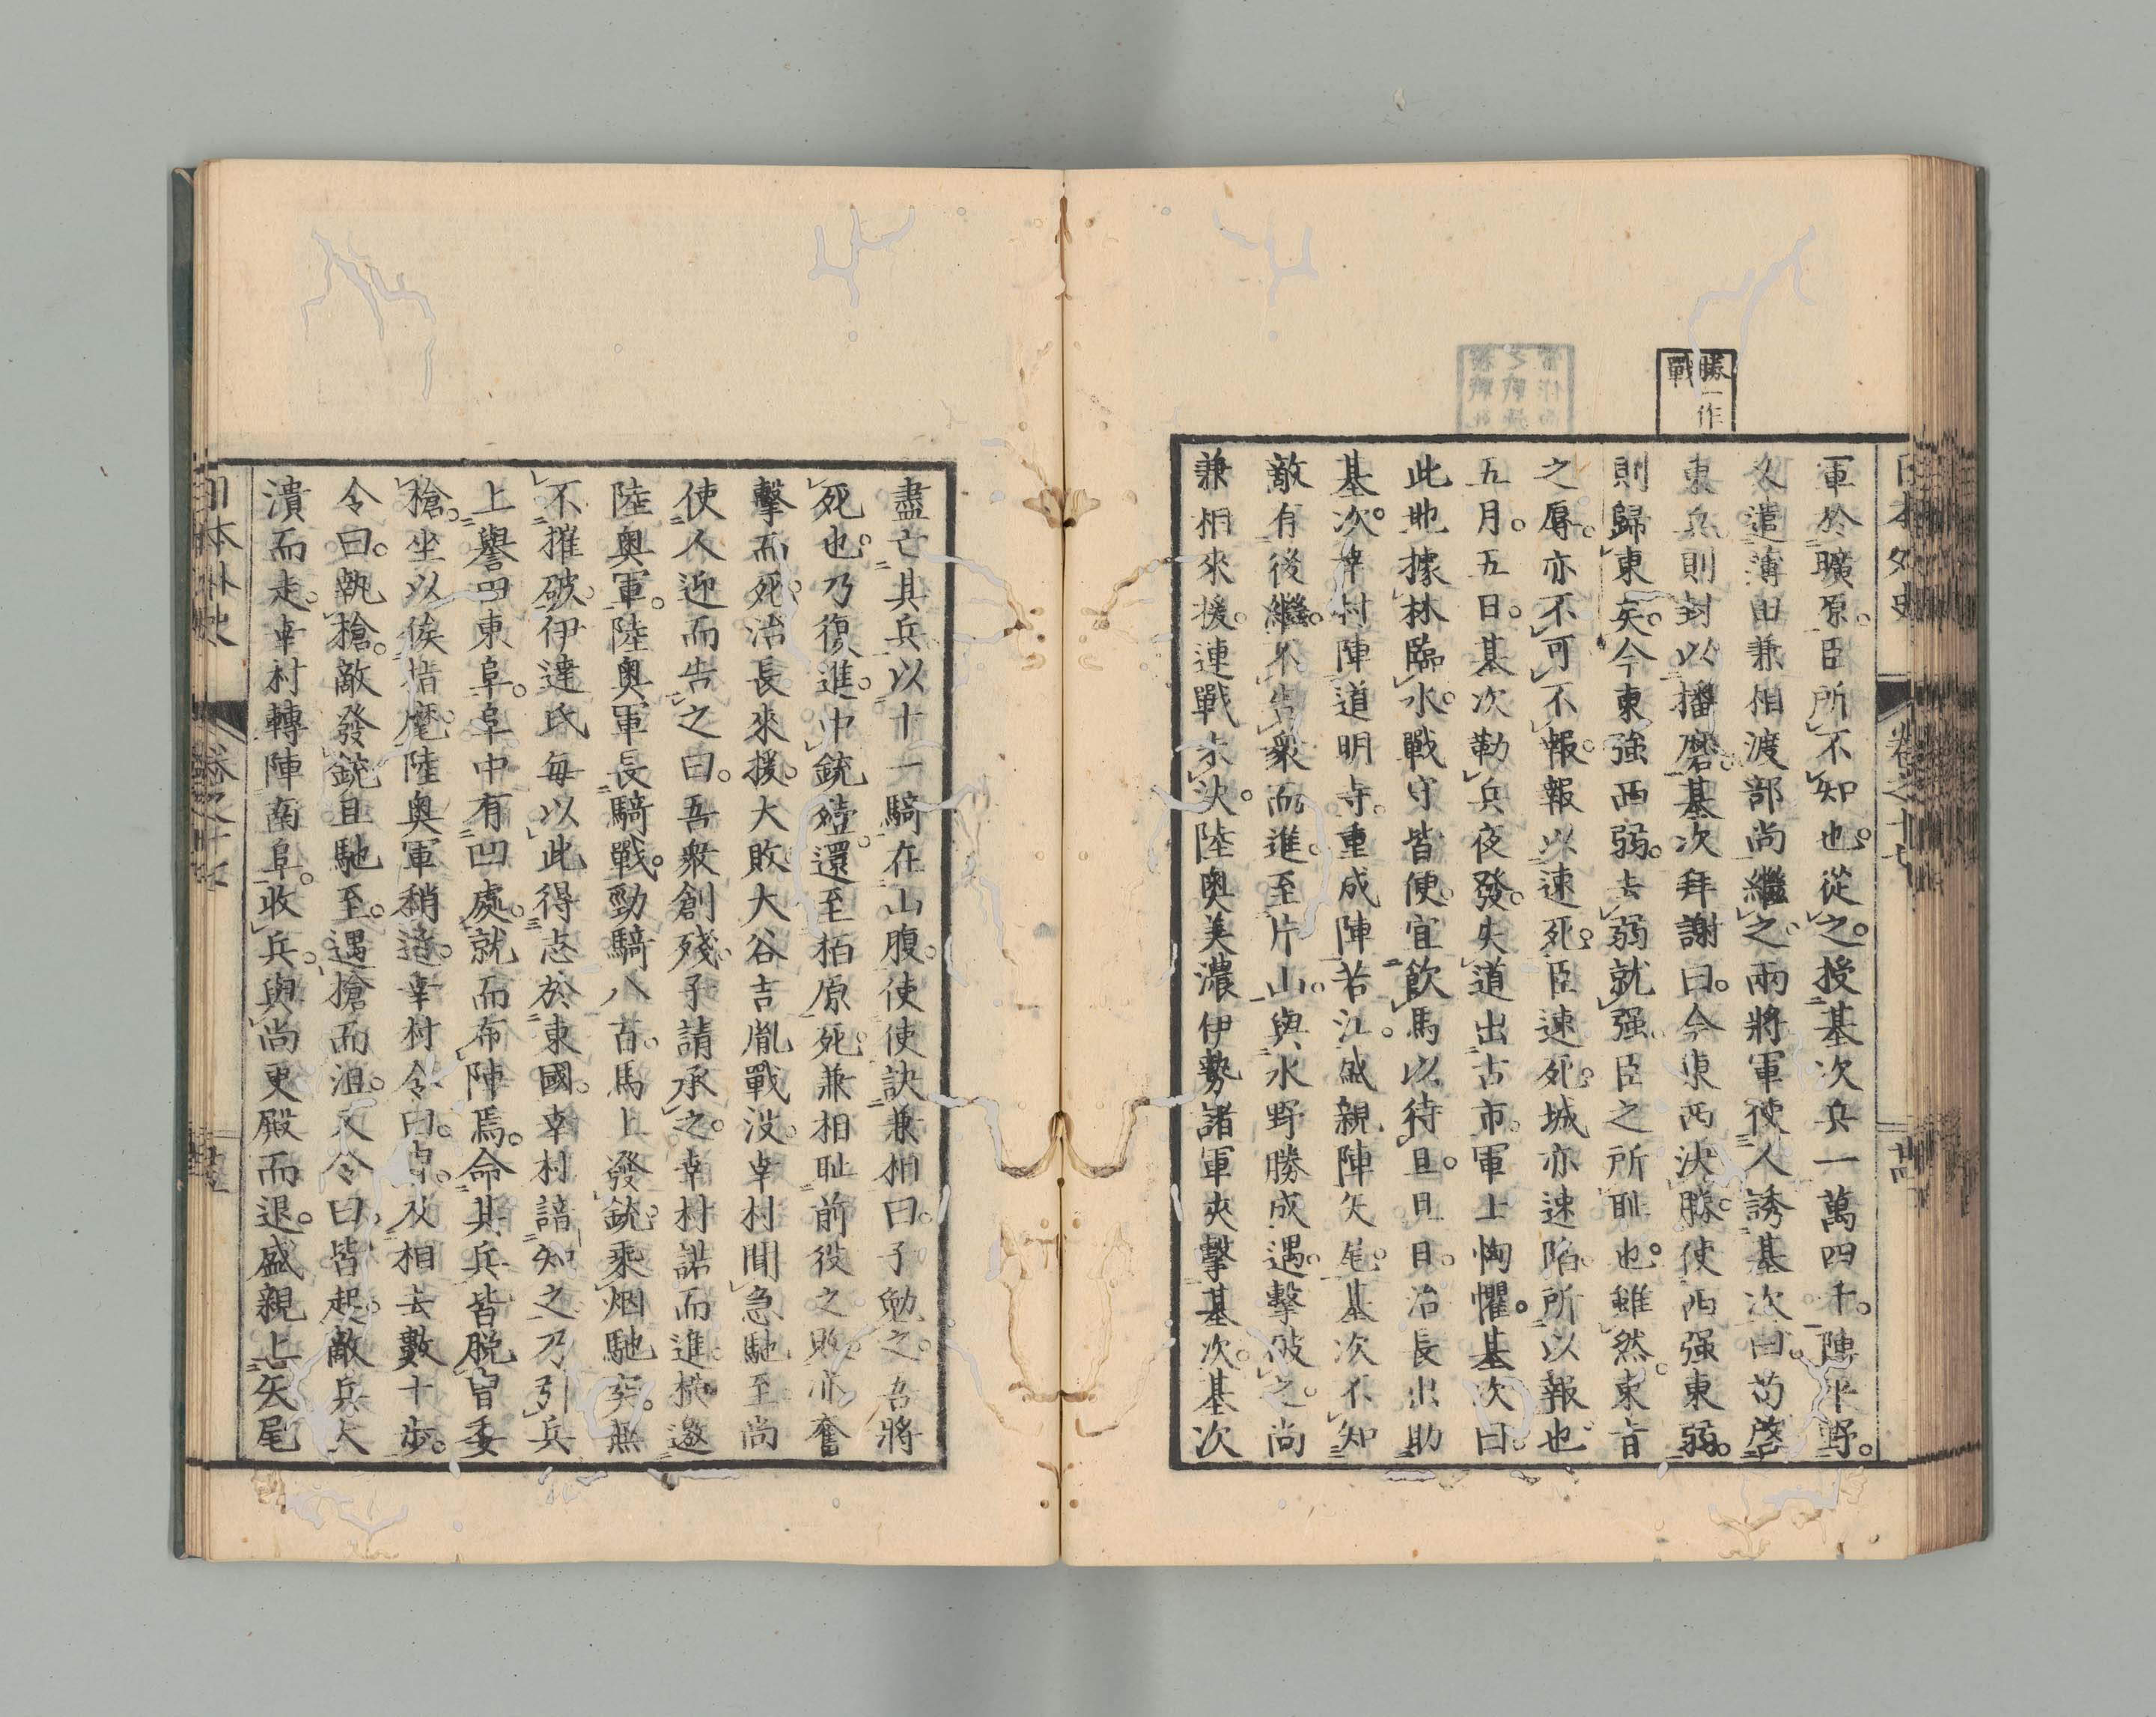 勝一作
戰
日本外史 卷之十七 廿四
軍於曠原。臣所不知也。從之。授基次兵一萬四千。陣平野。
又遣薄田兼相渡部尚繼之。兩將軍使人誘基次曰。苟啓
東兵則封以播磨。基次拜謝曰。今東西決勝。使西强東弱。
則歸東矣。今東強西弱。去弱就强。臣之所恥也。雖然東旨
之辱。亦不可不報。報以速死。臣速死。城亦速陷。所以報也
五月。五日。基次勒兵夜發。失道出古市。軍士恟懼。基次曰。
此地據林臨水。戰守皆便。宜飲馬以待旦。旦日。治長出助
基次。幸村陣道明寺。重成陣若江。盛親陣矢尾。基次不知
敵有後繼。不告衆而進。至片山。與水野勝成遇。擊破之。尚
兼相來援。連戰未決。陸奧美濃伊勢諸軍夾擊基次。基次
盡亡其兵。以十一騎在山腹。使使訣兼相曰。子勉之。吾將
死也。乃復進。中銃殪。還至栢原死。兼相耻前役之敗。亦奮
擊而死。治長來援。大敗。大谷吉胤戰沒。幸村聞急馳至。尚
使人迎而告之曰。吾衆創殘。子請承之。幸村諾而進。橫邀
陸奧軍。陸奧軍長騎戰。勁騎八百。馬上發銃。乘烟馳突。無
不摧破。伊達氏每以此得志於東國。幸村諳知之。乃引兵
上譽田東阜。阜中有凹處。就而布陣焉。命其兵皆脱冑委
槍。坐以俟指麾。陸奧軍稍逼。幸村令曰。冑。及相去數十步。
令曰。執槍。敵發銃且馳至。遇槍而沮。又令曰。皆起。敵兵大
潰而走。幸村轉陣南阜。收兵。與尚更殿而退。盛親上矢尾
日本外史 卷之十七